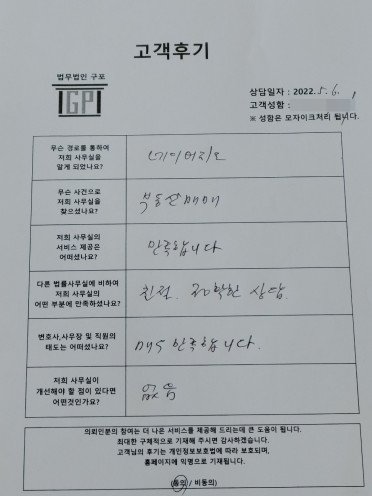 고객후기
법무법인 구포
GP
상담일자 : 2022. 5. 6.
고객성함 :
※ 성함은 모자이크처리 됩니다.
무슨 경로를 통하여
저희 사무실을
알게 되었나요?
네이버지도
무슨 사건으로
저희 사무실을
찾으셨나요?
부동산매매
저희 사무실의
서비스 제공은
어떠셨나요?
만족합니다
다른 법률사무실에 비하여
저희 사무실의
어떤 부분에 만족하셨나요?
친절. 정확한 상담.
변호사,사무장 및 직원의
태도는 어떠셨나요?
매우 만족합니다.
저희 사무실이
개선해야 할 점이 있다면
어떤것인가요?
없음
의뢰인분의 참여는 더 나은 서비스를 제공해 드리는데 큰 도움이 됩니다.
최대한 구체적으로 기재해 주시면 감사하겠습니다.
고객님의 후기는 개인정보보호법에 따라 보호되며,
홈페이지에 익명으로 기재됩니다.
(동의 / 비동의)